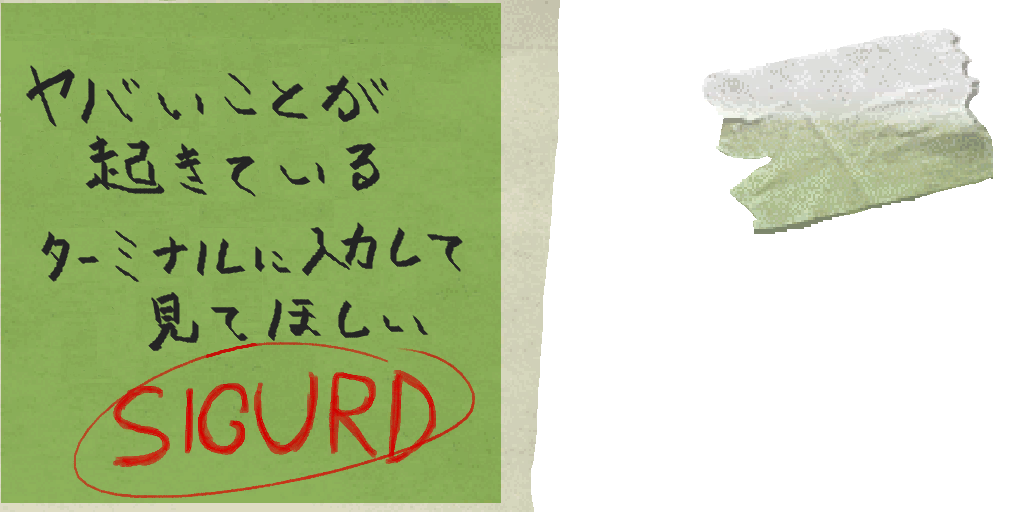 ヤバいことが
起きている
ターミナルに入力して
見てほしい
SIGURD